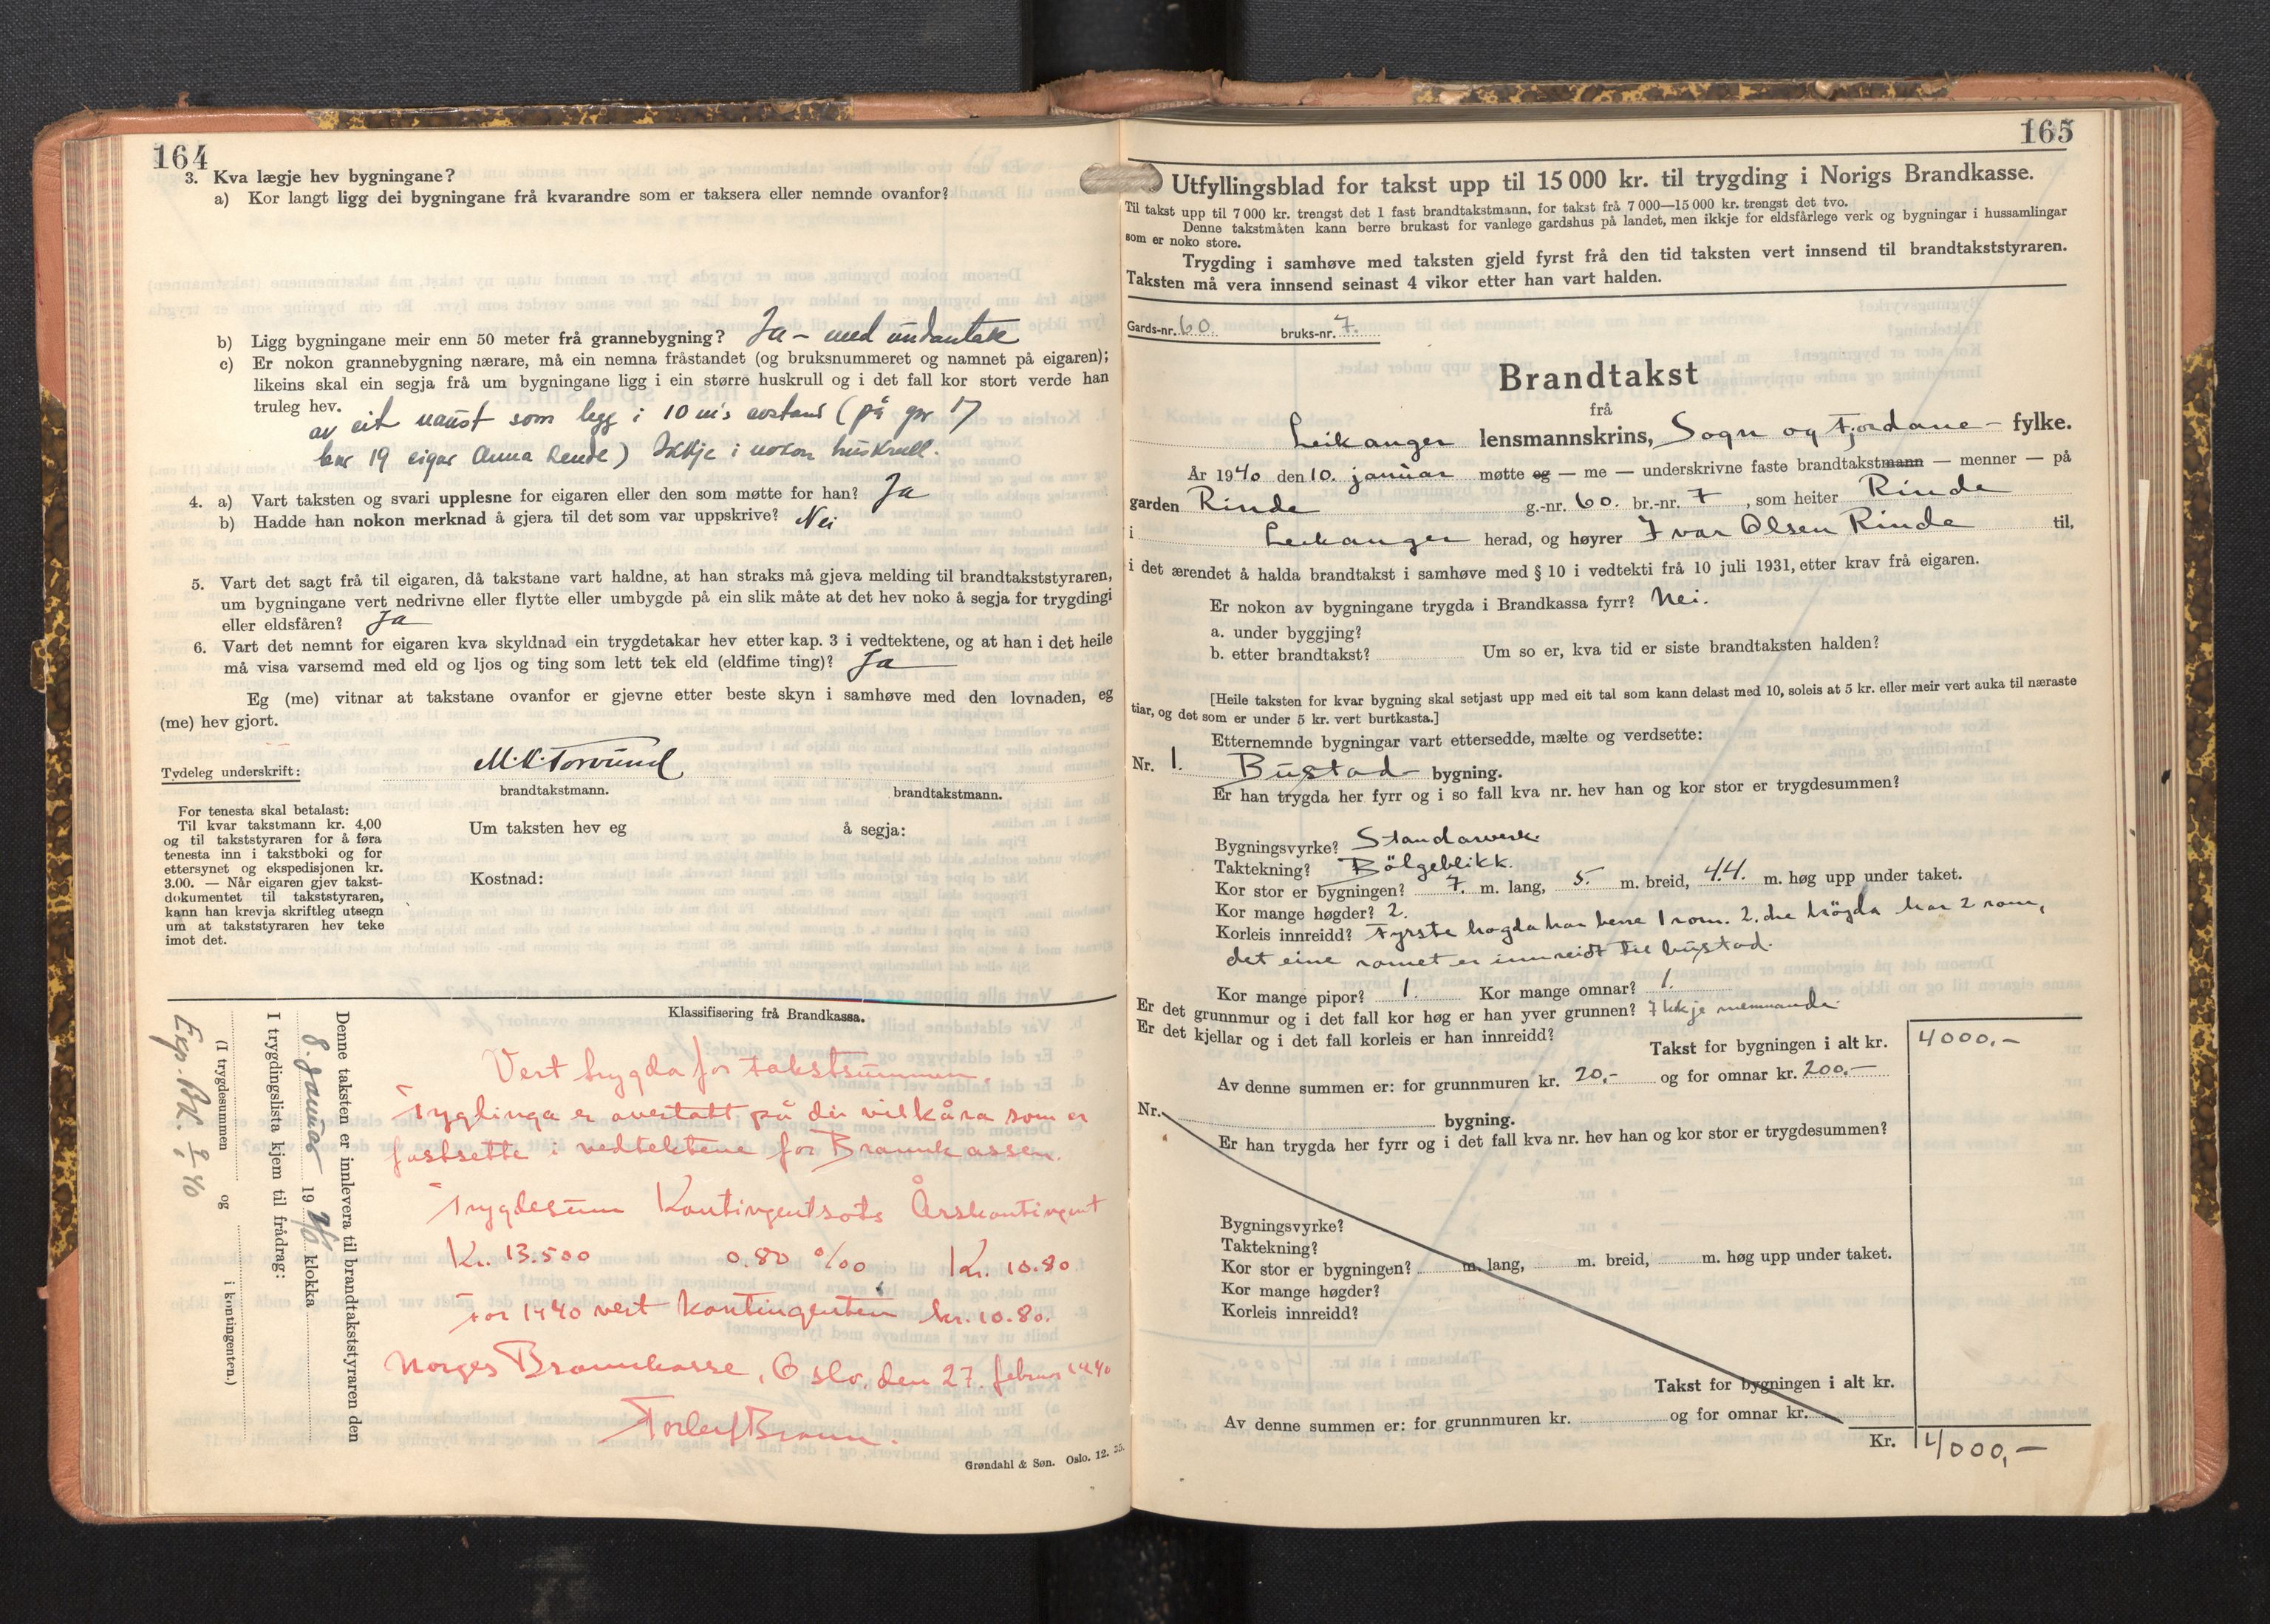 164
3. Kva lægje hev bygningane?
a) Kor langt ligg dei bygningane frå kvarandre som er taksera eller nemnde ovanfor?
b) Ligg bygningane meir enn 50 meter frå grannebygning? Ja – med undantak
c) Er nokon grannebygning nærare, må ein nemna fråstandet (og bruksnummeret og namnet på eigaren);
likeins skal ein segja frå um bygningane ligg i ein større huskrull og i det fall kor stort verde han
truleg hev.
av eit naust som ligg i 10 m's avstand (på gnr 17
bnr 19 eigar Anna Rende) Ikkje i nokon huskrull.
4. a) Vart taksten og svari upplesne for eigaren eller den som møtte for han? Ja
b) Hadde han nokon merknad å gjera til det som var uppskrive? Nei
5. Vart det sagt frå til eigaren, då takstane vart haldne, at han straks må gjeva melding til brandtakststyraren,
um bygningane vert nedrivne eller flytte eller umbygde på ein slik måte at det hev noko å segja for trygdingi
eller eldsfåren? Ja
6. Vart det nemnt for eigaren kva skyldnad ein trygdetakar hev etter kap. 3 i vedtektene, og at han i det heile
må visa varsemd med eld og ljos og ting som lett tek eld (eldfime ting)? Ja
Eg (me) vitnar at takstane ovanfor er gjevne etter beste skyn i samhøve med den lovnaden, eg
(me) hev gjort.
Tydeleg underskrift:
brandtakstmann. brandtakstmann.
For tenesta skal betalast:
Til kvar takstmann kr. 4,00
og til takststyraren for å føra
tenesta inn i takstboki og for
ettersynet og ekspedisjonen kr.
3.00. — Når eigaren gjev takst-
dokumentet til takststyraren,
kann han krevja skriftleg utsegn
um at takststyraren hev teke
imot det.
Um taksten hev eg å segja:
Kostnad:
Klassifisering frå Brandkassa.
Vert trygda for takstsummen.
Trygdinga er overtatt på dei vilkåra som er
fastsette i vedtektene for Brannkassen.
Trygdesum Kontingentsats Årskontingent
Kr. 13.500 0.80 ‰ Kr. 10.80
For 1940 vert kontingenten kr. 10.80.
Norges Brannkasse, Oslo, den 27. februar 1940
Denne taksten er innlevera til brandtakststyraren den
8. januar 1940 klokka
I trygdingslista kjem til frådrag:
(I trygdesummen og i kontingenten.)
Grøndahl & Søn. Oslo. 12. 35.
165
Utfyllingsblad for takst upp til 15 000 kr. til trygding i Norigs Brandkasse.
Til takst upp til 7 000 kr. trengst det 1 fast brandtakstmann, for takst frå 7 000—15 000 kr. trengst det tvo.
Denne takstmåten kann berre brukast for vanlege gardshus på landet, men ikkje for eldsfårlege verk og bygningar i hussamlingar
som er noko store.
Trygding i samhøve med taksten gjeld fyrst frå den tid taksten vert innsend til brandtakststyraren.
Taksten må vera innsend seinast 4 vikor etter han vart halden.
Gards-nr. 60. bruks-nr. 7.
Brandtakst
frå
Leikanger lensmannskrins, Sogn og Fjordane – fylke.
År 1940 den 10. januar møtte eg — me — underskrivne faste brandtakstmann — menner — på
garden Rinde g.-nr. 60. br.-nr. 7, som heiter Rinde
i Leikanger herad, og høyrer Ivar Olsen Rinde til,
i det ærendet å halda brandtakst i samhøve med § 10 i vedtekti frå 10 juli 1931, etter krav frå eigaren.
Er nokon av bygningane trygda i Brandkassa fyrr? Nei.
a. under byggjing?
b. etter brandtakst? Um so er, kva tid er siste brandtaksten halden?
[Heile taksten for kvar bygning skal setjast upp med eit tal som kann delast med 10, soleis at 5 kr. eller meir vert auka til næraste
tiar, og det som er under 5 kr. vert burtkasta.]
Etternemnde bygningar vart ettersedde, mælte og verdsette:
Nr. 1. Bustad bygning.
Er han trygda her fyrr og i so fall kva nr. hev han og kor stor er trygdesummen?
Bygningsvyrke? Standarverk.
Taktekning? Bölgeblikk.
Kor stor er bygningen? 7. m. lang, 5. m. breid, 4.4. m. høg upp under taket.
Kor mange høgder? 2.
Korleis innreidd? Fyrste høgda har berre 1 rom. 2. dre högda har 2 rom,
det eine romet er innreidt til bustad.
Kor mange pipor? 1. Kor mange omnar? 1.
Er det grunnmur og i det fall kor høg er han yver grunnen? Ikkje nemnande.
Er det kjellar og i det fall korleis er han innreidd?
Takst for bygningen i alt kr. 4000.–
Av denne summen er: for grunnmuren kr. 20,– og for omnar kr. 200.–
Nr. bygning.
Er han trygda her fyrr og i det fall kva nr. hev han og kor stor er trygdesummen?
Bygningsvyrke?
Taktekning?
Kor stor er bygningen? m. lang, m. breid, m. høg upp under taket.
Kor mange høgder?
Korleis innreidd?
Takst for bygningen i alt kr.
Av denne summen er: for grunnmuren kr. og for omnar kr.
Kr. 4000,–